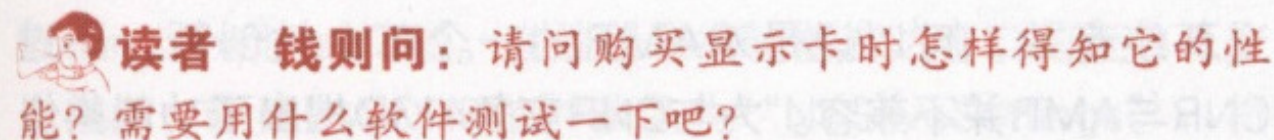 读者 钱则问：请问购买显示卡时怎样得知它的性
能？需要用什么软件测试一下吧？